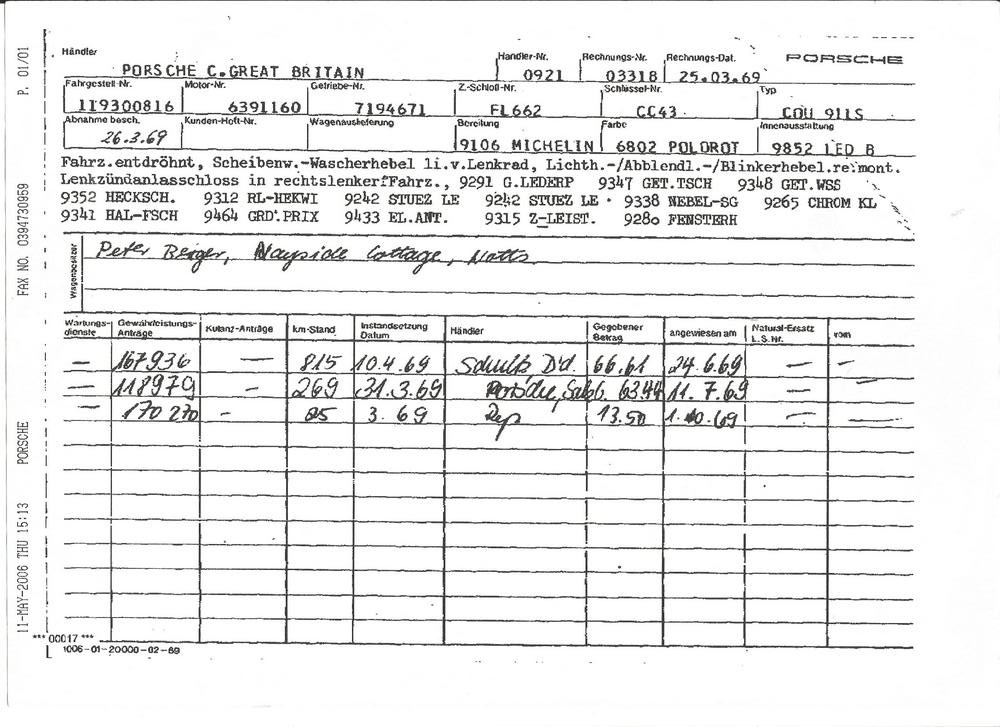 Händler
PORSCHE C.GREAT BRITAIN
Händler-Nr. 0921
Rechnungs-Nr. 03318
Rechnungs-Dat. 25.03.69
PORSCHE
Fahrgestell-Nr. Motor-Nr. Getriebe-Nr. Z.-Schloß-Nr. Schlüssel-Nr. Typ
119300816 6391160 7194671 FL662 CC43 COU 911S
Abnahme besch. Kunden-Heft-Nr. Wagenauslieferung Bereifung Farbe Innenausstattung
26.3.69 9106 MICHELIN 6802 POLOROT 9852 LED B
Fahrz.entdröhnt, Scheibenw.-Wascherhebel li.v.Lenkrad, Lichth.-/Abblendl.-/Blinkerhebel.re.mont.
Lenkzündanlasschloss in rechtslenker-Fahrz., 9291 G.LEDERP 9347 GET.TSCH 9348 GET.WSS
9352 HECKSCH. 9312 RL-HEKWI 9242 STUEZ LE 9242 STUEZ LE 9338 NEBEL-SG 9265 CHROM KL
9341 HAL-FSCH 9464 GRD.PRIX 9433 EL.ANT. 9315 Z-LEIST. 9280 FENSTERH
Wagenbesitzer
Peter Berger, Wayside Cottage, Notts
Wartungs-dienste Gewährleistungs-Anträge Kulanz-Anträge km-Stand Instandsetzung Datum Händler Gegebener Betrag angewiesen am Natural-Ersatz L.S.Nr. vom
— 167936 — 815 10.4.69 Schultz, D'd. 66.61 24.6.69 — —
— 118979 - 269 31.3.69 63.44 11.7.69 — —
— 170270 - 85 3.69 Rep 13.50 1.10.69 — —
*** 00017 ***
1006-01-20000-02-69
11-MAY-2006 THU 15:13 PORSCHE FAX NO. 0394730959 P. 01/01